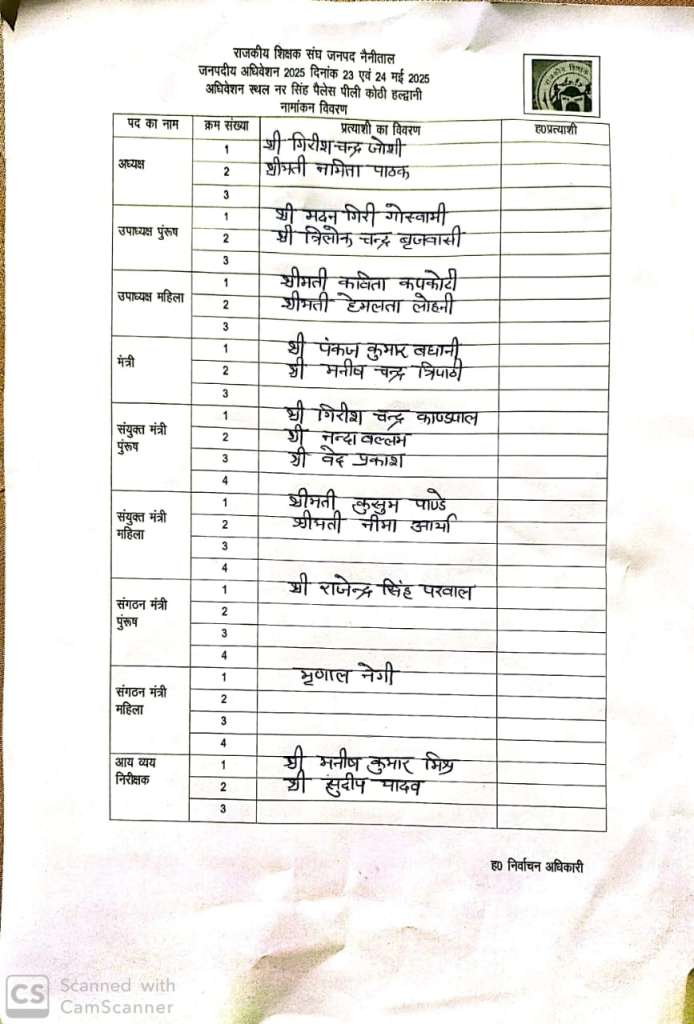 राजकीय शिक्षक संघ जनपद नैनीताल
जनपदीय अधिवेशन 2025 दिनांक 23 एवं 24 मई 2025
अधिवेशन स्थल नर सिंह पैलेस पीली कोठी हल्द्वानी
नामांकन विवरण
पद का नाम क्रम संख्या प्रत्याशी का विवरण ह0प्रत्याशी
अध्यक्ष
1 श्री गिरीश चन्द्र जोशी
2 श्रीमती नमिता पाठक
3
उपाध्यक्ष पुंरूष
1 श्री मदन गिरी गोस्वामी
2 श्री त्रिलोक चन्द्र बृजवासी
3
उपाध्यक्ष महिला
1 श्रीमती कविता कपकोटी
2 श्रीमती हेमलता लोहनी
3
मंत्री
1 श्री पंकज कुमार बधानी
2 श्री मनीष चन्द्र त्रिपाठी
3
संयुक्त मंत्री
पुंरूष
1 श्री गिरीश चन्द्र काण्डपाल
2 श्री नन्दा वल्लभ
3 श्री वेद प्रकाश
4
संयुक्त मंत्री
महिला
1 श्रीमती कुसुम पाण्डे
2 श्रीमती नीमा आर्या
3
4
संगठन मंत्री
पुंरूष
1 श्री राजेन्द्र सिंह परवाल
2
3
4
संगठन मंत्री
महिला
1 मृणाल नेगी
2
3
4
आय व्यय
निरीक्षक
1 श्री मनीष कुमार मिश्र
2 श्री सुदीप यादव
3
ह0 निर्वाचन अधिकारी
CS Scanned with
CamScanner